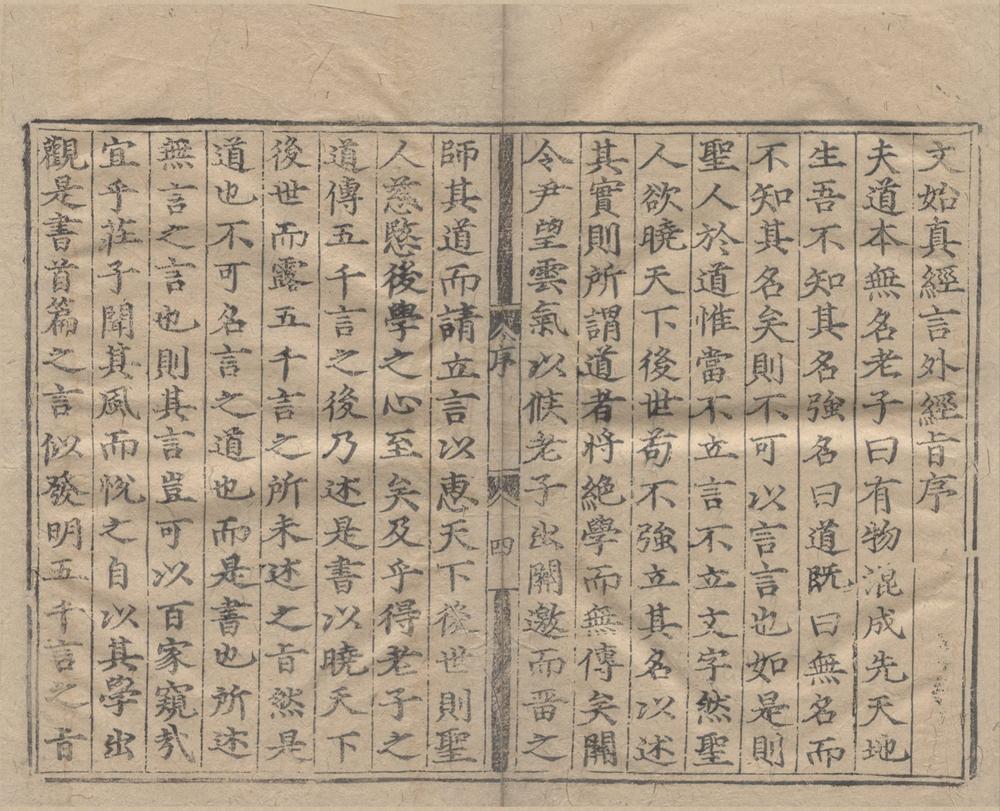 文始真經言外經旨序
夫道本無名老子曰有物混成先天地
生吾不知其名強名曰道既曰無名而
不知其名矣則不可以言言也如是則
聖人於道惟當不立言不立文字然聖
人欲曉天下後世苟不強立其名以述
其實則所謂道者將絶學而無傳矣關
令尹望雲氣以候老子出關邀而畱之
序
四
師其道而請立言以惠天下後世則聖
人慈愍後學之心至矣及乎得老子之
道傳五千言之後乃述是書以曉天下
後世而露五千言之所未述之旨然是
道也不可名言之道也而是書也所述
無言之言也則其言豈可以百家窺㢤
宜乎莊子聞其風而悅之自以其學出
觀是書首篇之言似發明五千言之旨